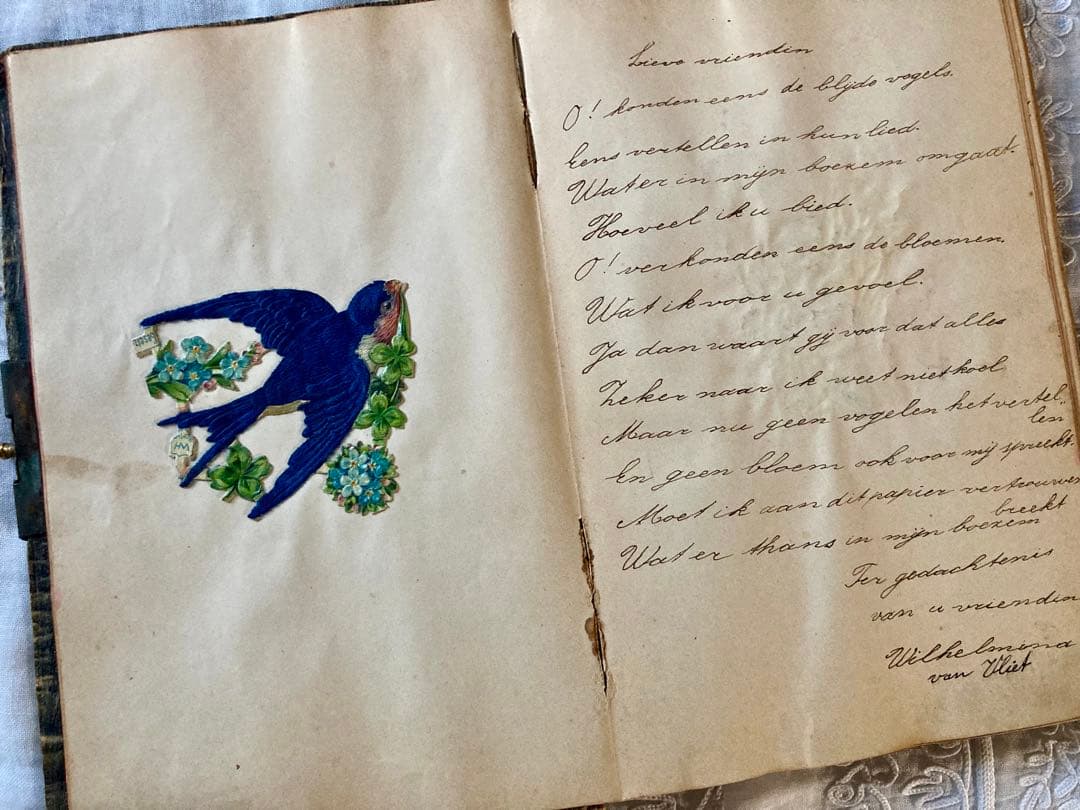 Lieve vriendin
O! konden eens de blijde vogels.
Eens vertellen in hun lied.
Wat er in mijn boezem omgaat.
Hoeveel ik u bied.
O! verkonden eens de bloemen.
Wat ik voor u gevoel.
Ja dan waart gij voor dat alles
Zeker naar ik weet niet koel
Maar nu geen vogelen het vertel-
len
En geen bloem ook voor mij spreekt
Moet ik aan dit papier vertrouwen
Wat er thans in mijn boezem
breekt
Ter gedachtenis
van u vriendin
Wilhelmina
van Vliet